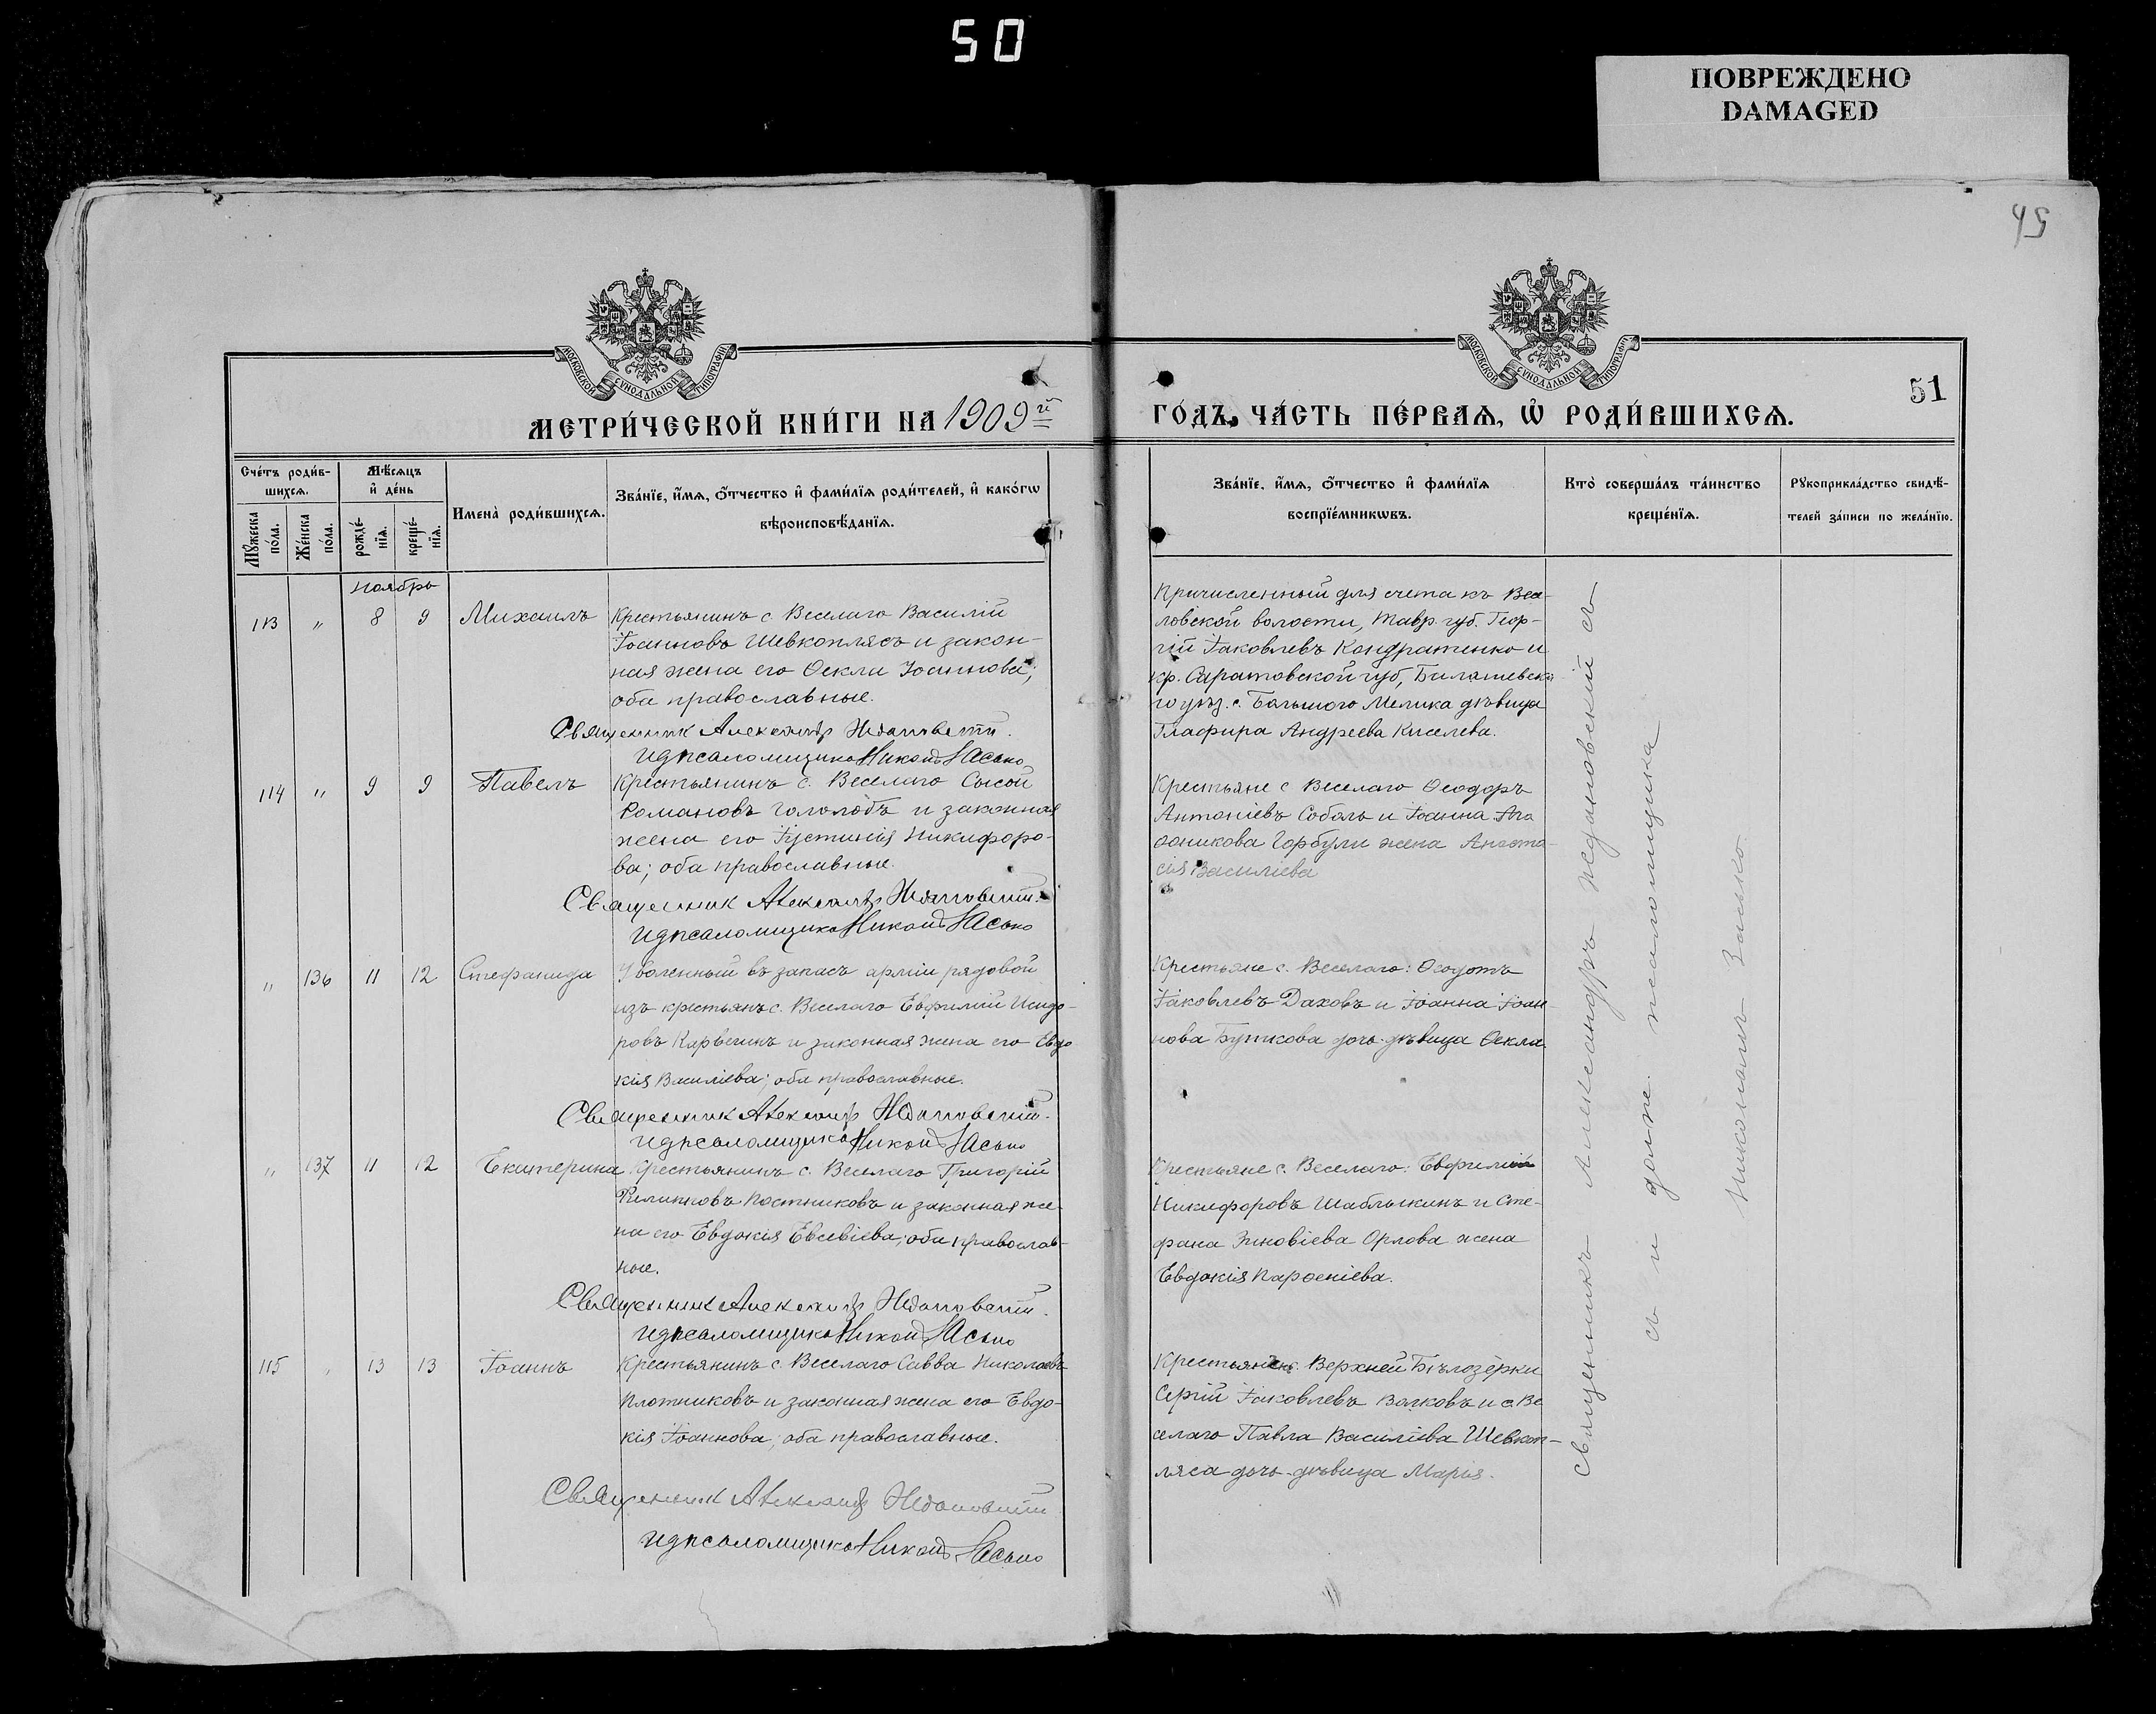 50
ПОВРЕЖДЕНО
DAMAGED
45
51
МОСКОВСКОЙ СУНОДАЛЬНОЙ ТИПОГРАФІИ
МОСКОВСКОЙ СУНОДАЛЬНОЙ ТИПОГРАФІИ
МЕТРИ́ЧЕСКОЙ КНИ́ГИ НА 1909й
ГО́ДЪ, ЧА́СТЬ ПЕ́РВАѦ, Ѡ҆ РОДИ́ВШИХСѦ.
Сче́тъ роди́в-
шихсѧ.
Мꙋ́жеска по́ла.
Же́нска по́ла.
Мѣ́сѧцъ
и҆ де́нь
рожде́-
нїѧ.
креще́-
нїѧ.
Имена̀ роди́вшихсѧ.
Зва́нїе, и҆́мѧ, ѻ҆́тчество и҆ фами́лїѧ роди́телей, и҆ како́гѡ
вѣроисповѣ́данїѧ.
Зва́нїе, и҆́мѧ, ѻ҆́тчество и҆ фами́лїѧ
воспрїе́мникѡвъ.
Кто̀ соверша́лъ та́инство
креще́нїѧ.
Рꙋкоприкла́дство свидѣ́-
телей за́писи по жела́нїю.
Ноябрь
113 " 8 9 Михаилъ
Крестьянинъ с. Веселаго Василій
Іоанновъ Шевкоплясъ и закон-
ная жена его Ѳекла Іоаннова;
оба православные.
Священник Александр Недановский.
и д. псаломщика Никол. Засько
Причисленный для счета къ Весе-
ловской волости, Тавр. губ. Геор-
гій Іаковлевъ Кондратенко и
кр. Саратовской губ,
го уѣз. с. Большого Мелика дѣвица
Глафира Андреева Киселева.
114 " 9 9 Павелъ
Крестьянинъ с. Веселаго Сысой
Романовъ Гололобъ и законная
жена его Іустинія Никифоро-
ва; оба православные.
Священник Александр Недановский.
и д. псаломщика Никол. Засько
Крестьяне с Веселаго Ѳеодоръ
Антоніевъ Соболь и Іоанна Ага
ѳоникова Горбули жена Анаста-
сія Василіева
" 136 11 12 Стефанида
Уволенный въ запасъ арміи рядовой
изъ крестьянъ с. Веселаго Евфимій Исидо-
ровъ и законная жена его Евдо
кія Василіева; оба православные.
Священник Александр Недановский.
и д. псаломщика Никол. Засько
Крестьяне с. Веселаго: Ѳеодотъ
Іаковлевъ Даховъ и Іоанна Іоан-
нова Буткова дочь-дѣвица Ѳекла.
" 137 11 12 Екатерина
Крестьянинъ с. Веселаго Григорій
Филипповъ Постниковъ и законная же-
на его Евдокія Евсевіева; оба православ-
ные.
Священник Александр Недановский.
и д. псаломщика Никол. Засько
Крестьяне с. Веселаго: Евфимій
Никифоровъ Шаблыкинъ и Сте-
фана Зиновіева Орлова жена
Евдокія Парѳеніева.
115 " 13 13 Іоаннъ
Крестьянинъ с. Веселаго Савва Николаевъ
Плотниковъ и законная жена его Евдо-
кія Іоаннова; оба православные.
Священник Александр Недановский
и д псаломщика Никол. Засько
Крестьяне с. Верхней Бѣлозерки
Сергій Іаковлевъ Волковъ и с. Ве
селаго Павла Василіева Шевкоп-
ляса дочь-дѣвица Марія.
Священникъ Александръ Недановский съ
и долж. псаломщика
Николаемъ Засько